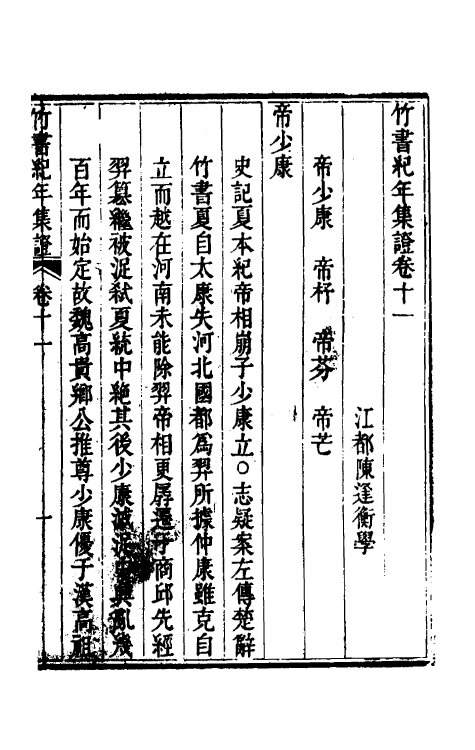 竹書紀年集證卷十一
江都陳逢衡學
帝少康　帝杼　帝芬　帝芒
帝少康
史記夏本紀帝相崩子少康立○志疑案左傳楚辭
竹書夏自太康失河北國都爲羿所據仲康雖克自
立而越在河南未能除羿帝相更孱遷于商邱先經
羿簒繼被浞弑夏統中絶其後少康滅浞興亂幾
百年而始定故魏高貴鄉公推尊少康優于漢高祖
竹書紀年集證　卷十一　十